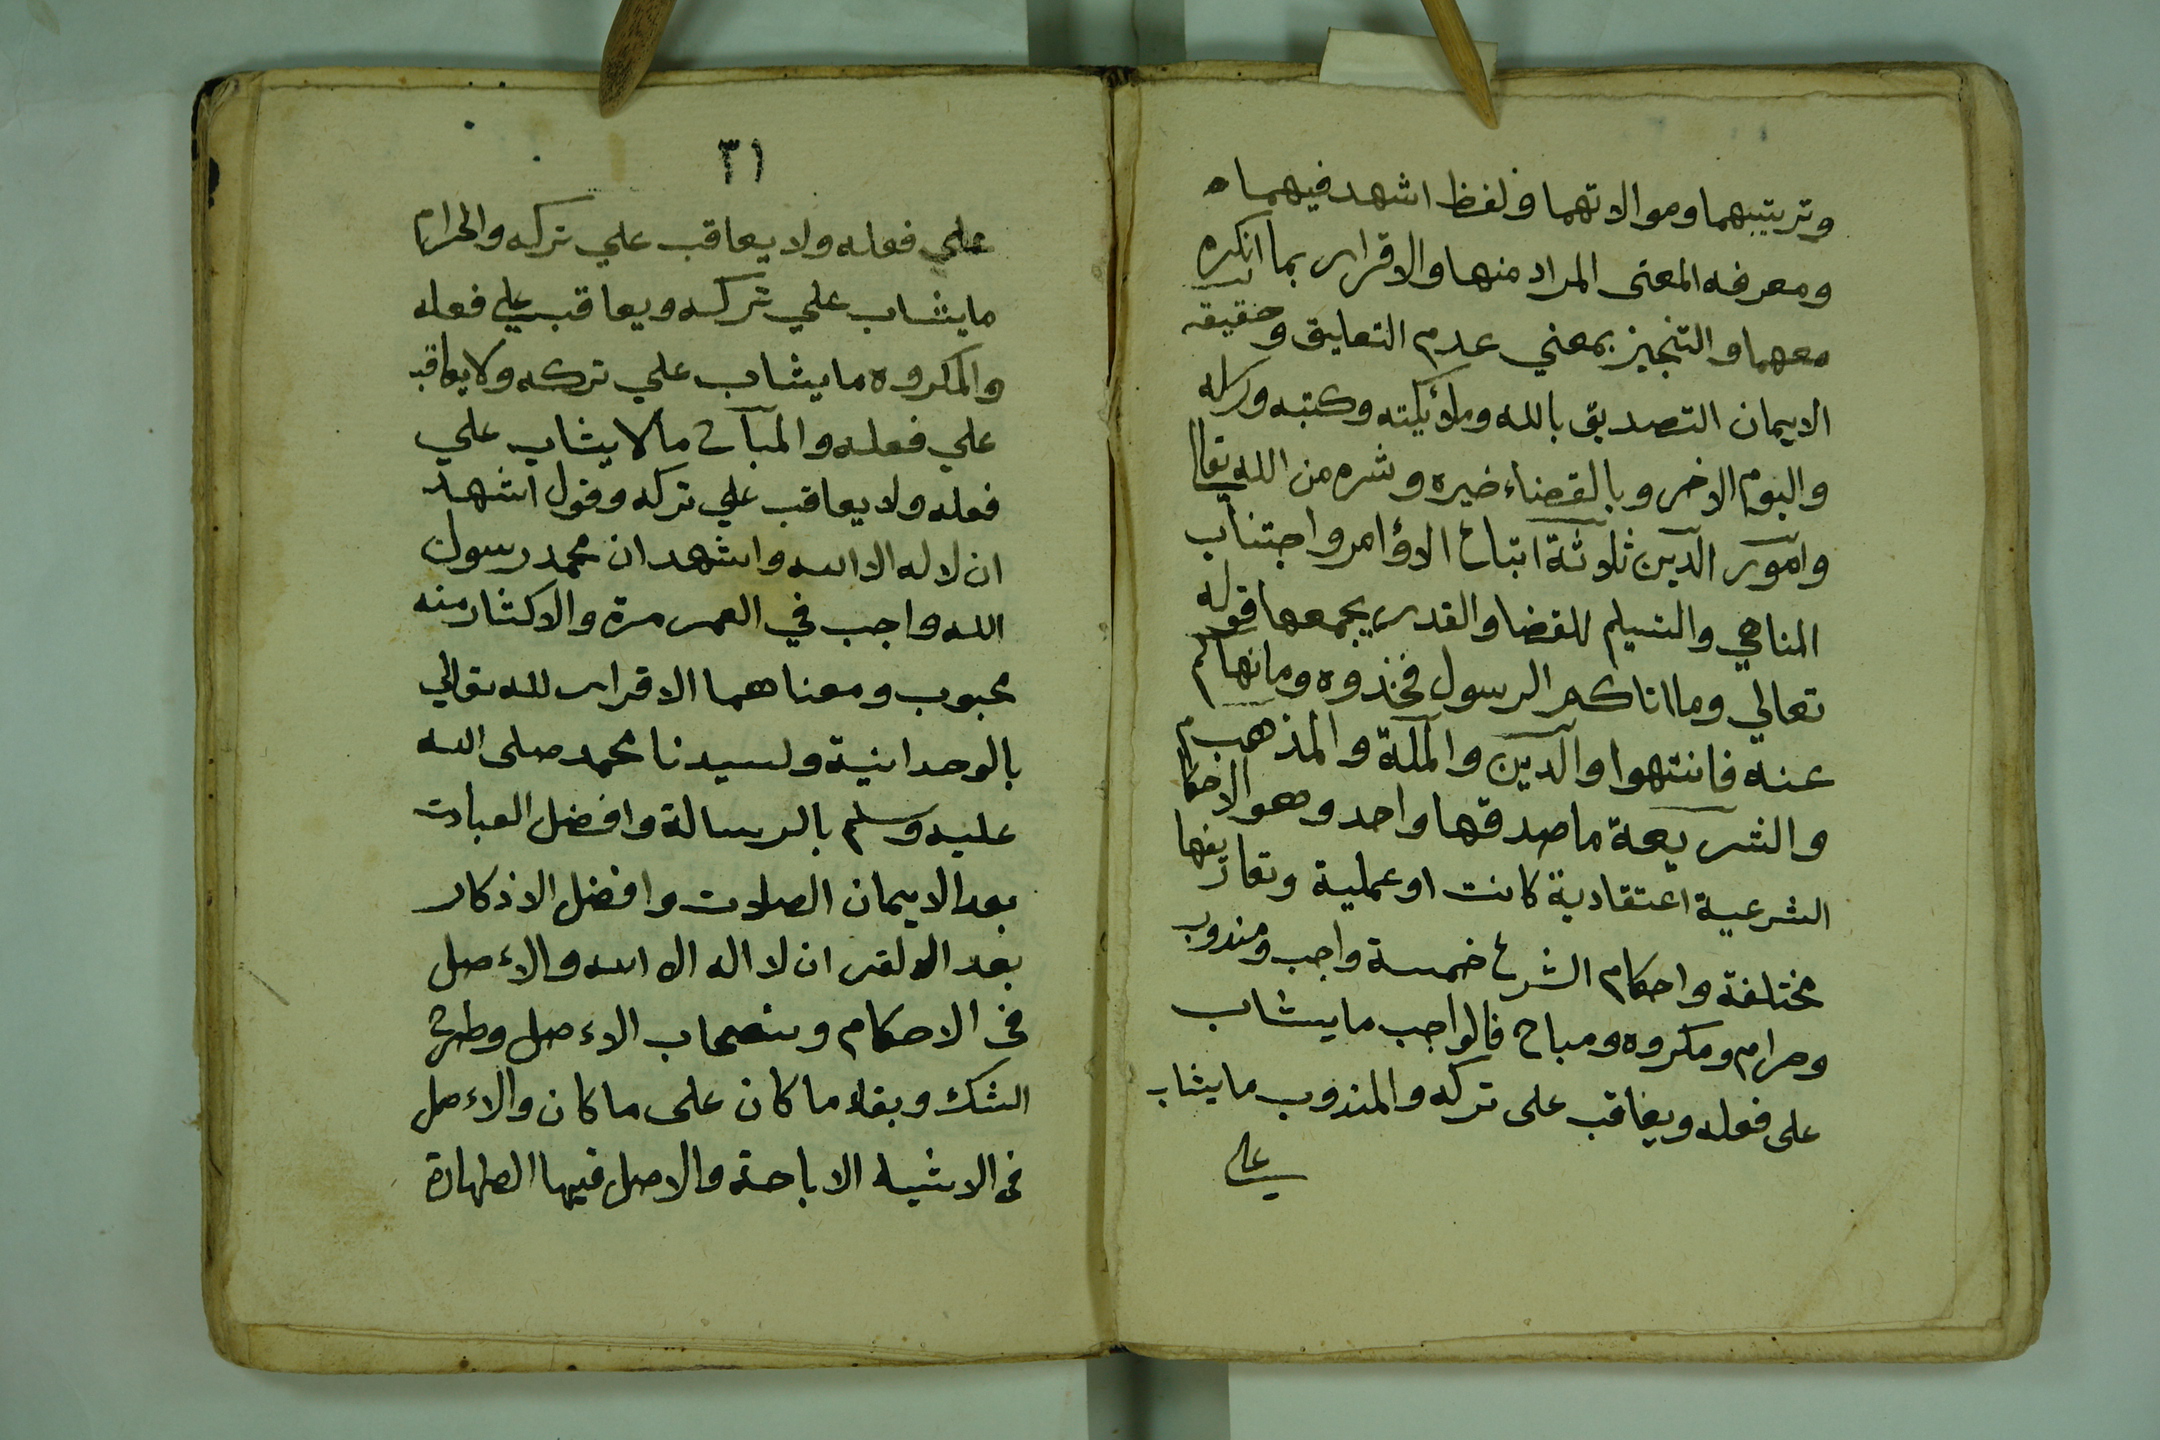 وترتيبهما وموالاتهما ولفظ اشهد فيهما
ومعرفه المعنى المراد منها والاقرار بما انكره
معهما والتنجيز بمعني عدم التعليق وحقيقه
الايمان التصديق بالله وملائكته وكتبه ورسله
واليوم الاخر وبالقضاء خيره وشره من الله تعالي
وامور الدين ثلاثة اتباع الاوامر واجتناب
المناهي والتسليم للقضا والقدر يجمعها قوله
تعالي وما اتاكم الرسول فخذوه وما نهاكم
عنه فانتهوا والدين والملة والمذهب
والشريعة ماصدقها واحد وهو الاحكام
الشرعية اعتقادية كانت او عملية وتعاريفها
مختلفة واحكام الشرع خمسة واجب ومندوب
وحرام ومكروه ومباح فالواجب ما يثاب
على فعله ويعاقب على تركه والمندوب ما يثاب
علي
٣١
علي فعله ولا يعاقب علي تركه والحرام
ما يثاب علي تركه ويعاقب علي فعله
والمكروه ما يثاب علي تركه ولا يعاقب
علي فعله والمباح ما لا يثاب علي
فعله ولا يعاقب علي تركه وقول اشهد
ان لا له الا الله واشهد ان محمد رسول
الله واجب في العمر مرة والاكثار منه
محبوب ومعناهما الاقرار لله تعالي
بالوحدانية ولسيدنا محمد صلى الله
عليه وسلم بالرسالة وافضل العبادت
بعد الايمان الصلات وافضل الاذكار
بعد القران لا اله الا الله والاءصل
في الاحكام وستصحاب الاءصل وطرح
الشك وبقاء ما كان على ما كان والاءصل
في الاشياء الاباحة والاصل فيها الطهارة